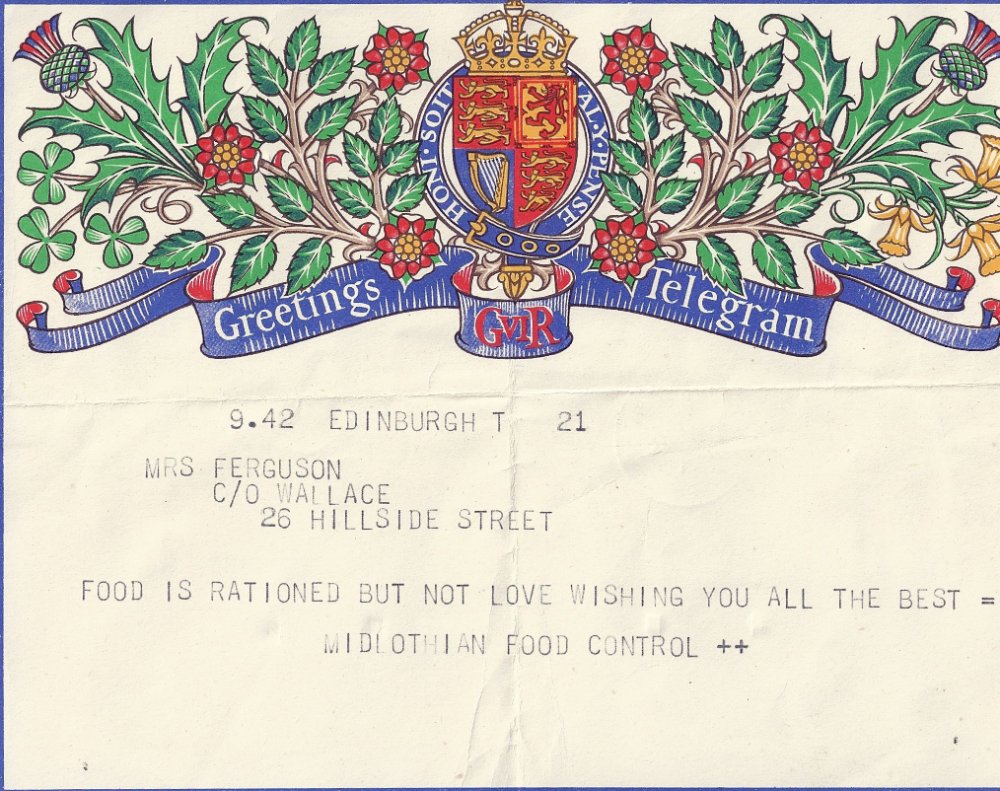 HONI·SOIT AL·Y·PENSE
Greetings Telegram
GVIR
9.42 EDINBURGH T 21
MRS FERGUSON
C/O WALLACE
26 HILLSIDE STREET
FOOD IS RATIONED BUT NOT LOVE WISHING YOU ALL THE BEST =
MIDLOTHIAN FOOD CONTROL ++